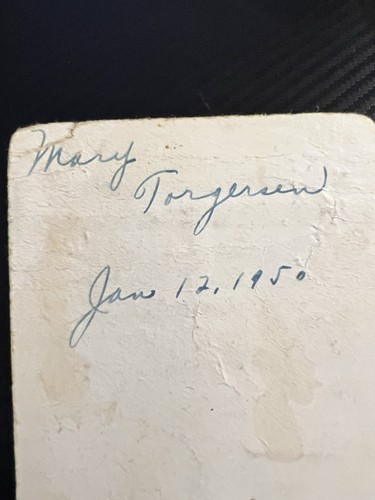 Mary
Torgersen
Jan 12, 1950